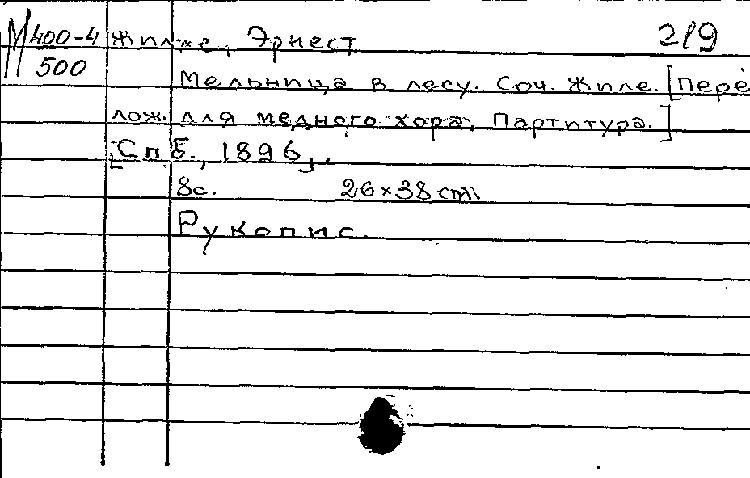 М 400-4 Жилже, Эрнест 219
500
Мельница в лесу. Соч. Жиле. [Пере
лож. для медного хора. Партитура.]
[СПБ., 1896].
8с. 26×38 см.
Рукопис.